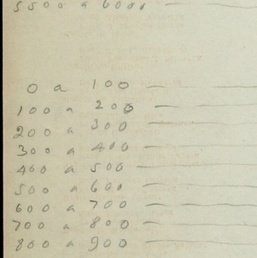 5500 a 6000
0 a 100
100 a 200
200 a 300
300 a 400
400 a 500
500 a 600
600 a 700
700 a 800
800 a 900